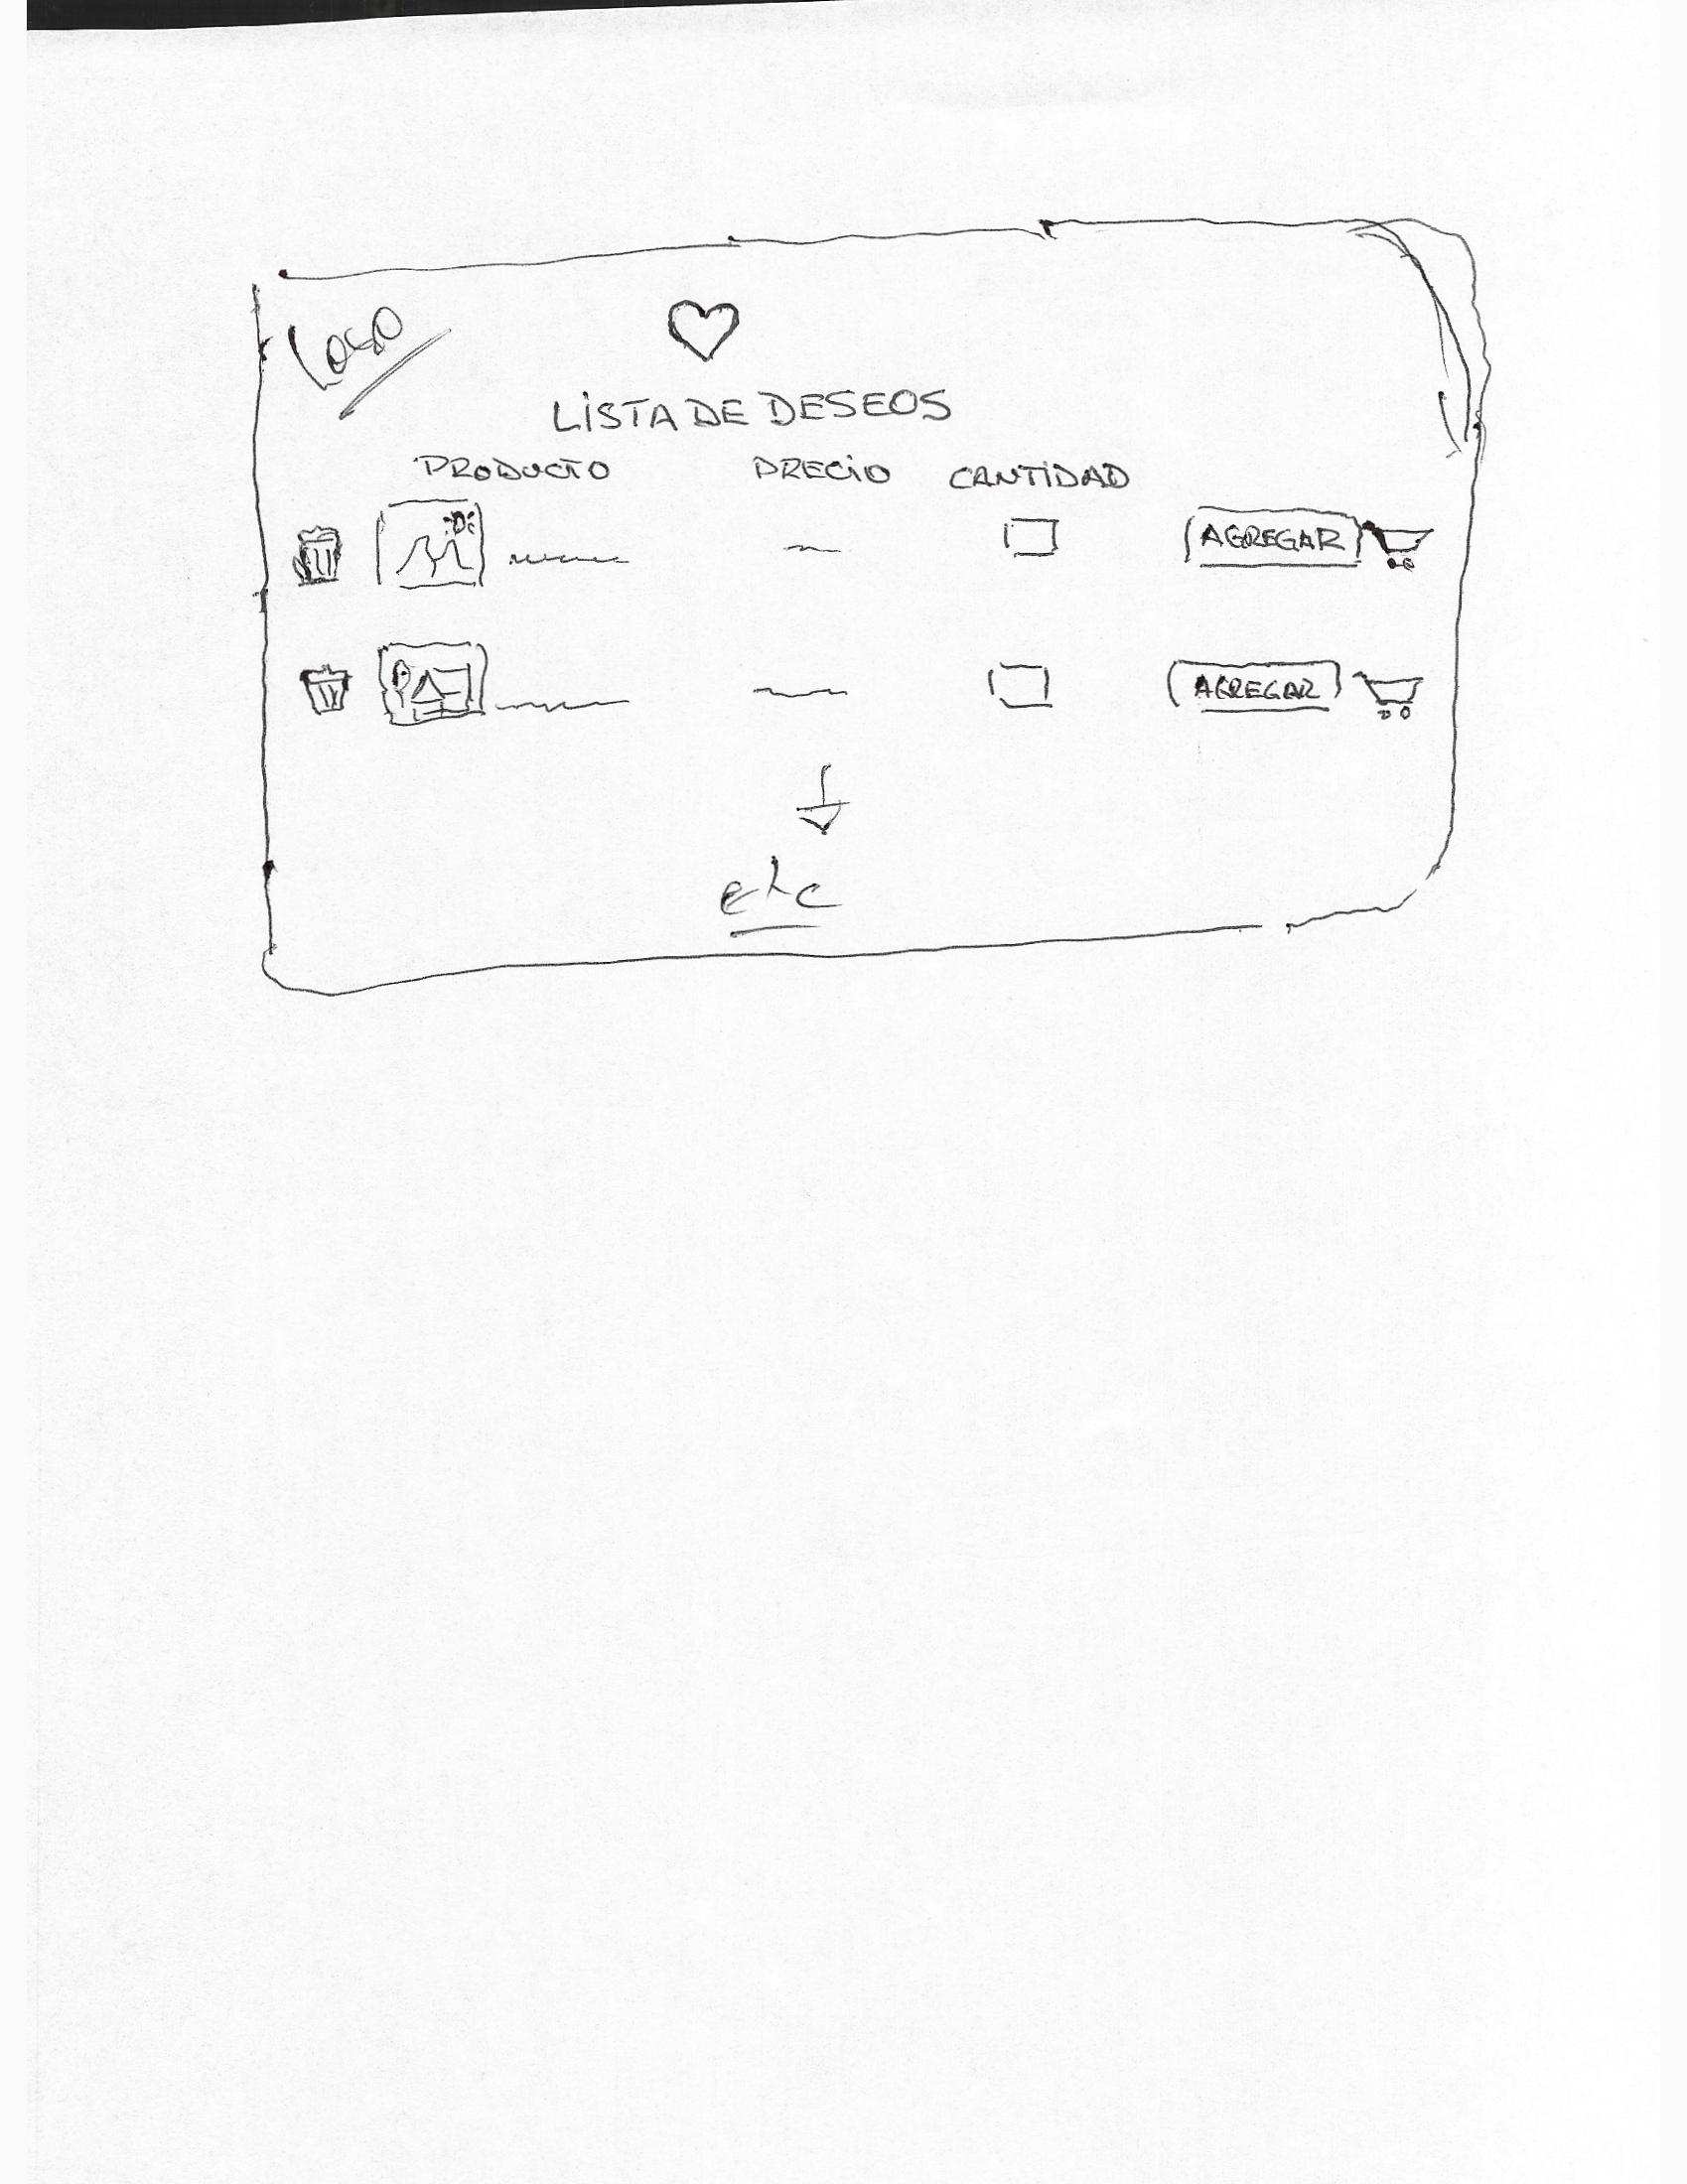 Logo
LISTA DE DESEOS
PRODUCTO PRECIO CANTIDAD
AGREGAR
AGREGAR
etc